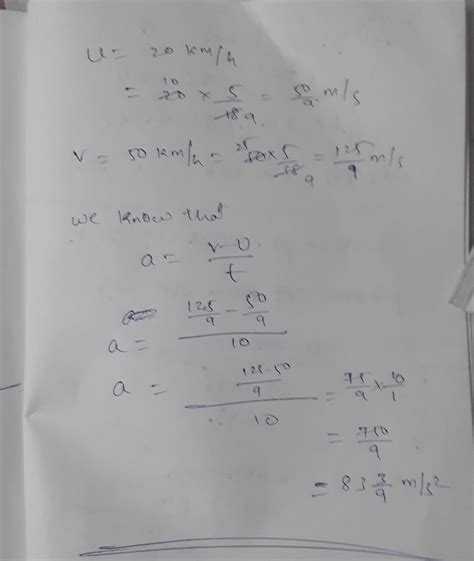 u = 20 km/h
= 20 10 × 5/18 9 = 50/9 m/s
v = 50 km/h = 25 50 × 5/18 9 = 125/9 m/s
we know that
a = v-u/t
a = 125/9 - 50/9 / 10
a = 125-50/9 / 10 = 75/9 × 10/1
= 750/9
= 83 3/9 m/s²